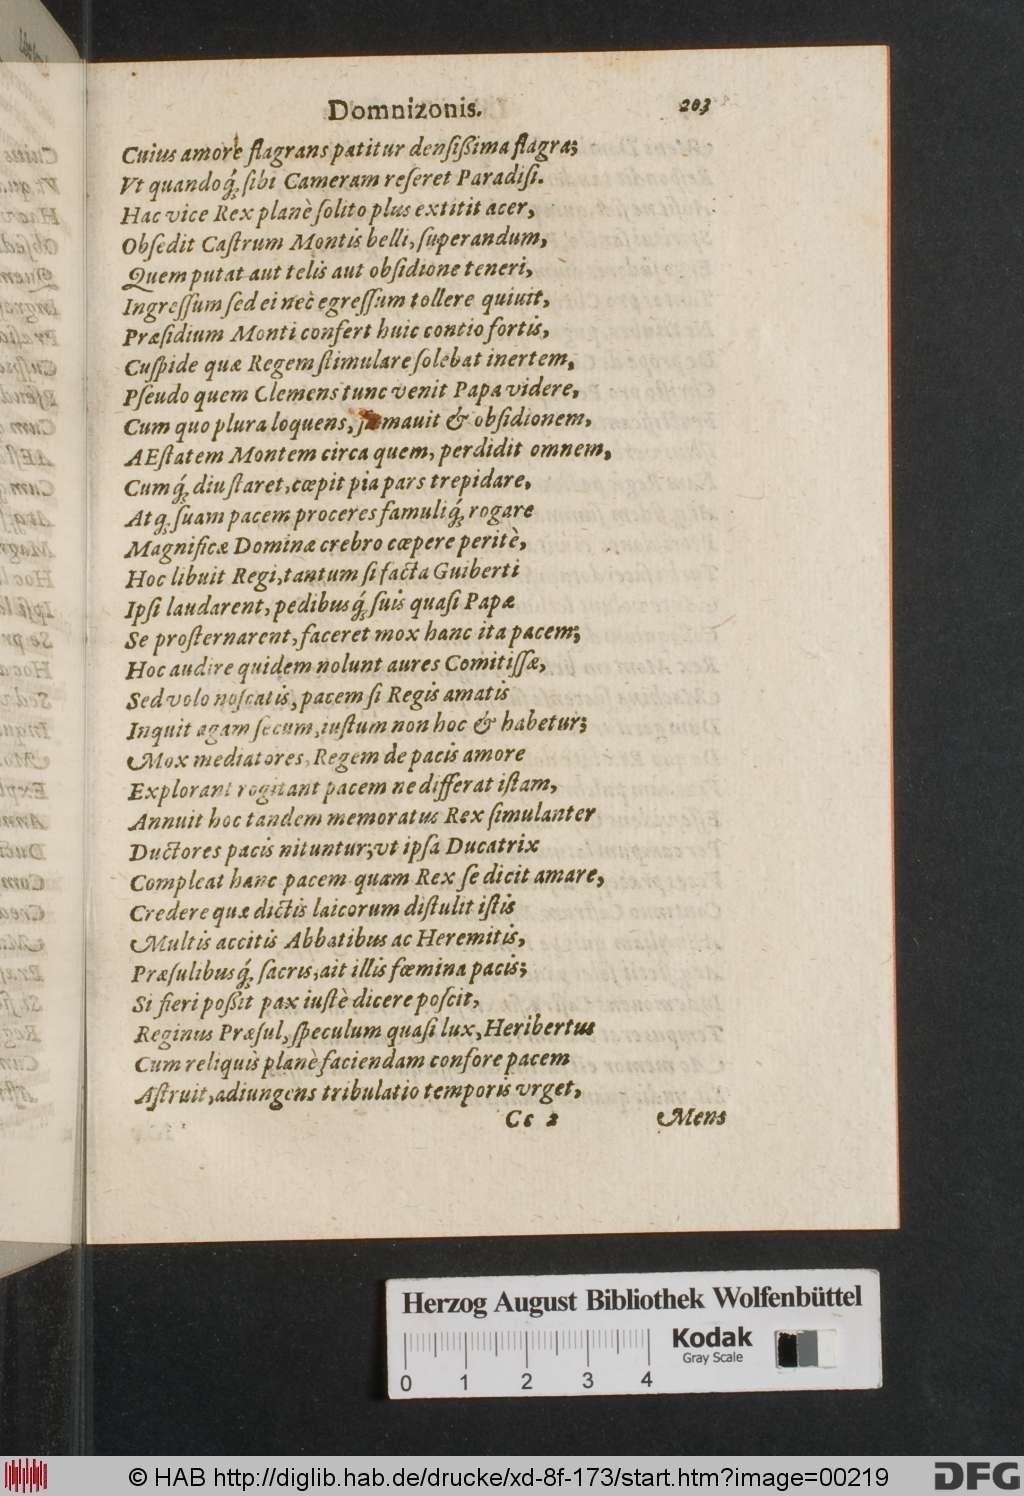 Domnizonis. 203
Cuius amore flagrans patitur denſiſſima flagra;
Vt quandoq́; ſibi Cameram reſeret Paradiſi.
Hac vice Rex planè ſolito plus extitit acer,
Obſedit Caſtrum Montis belli, ſuperandum,
Quem putat aut telis aut obſidione teneri,
Ingreſſum ſed ei nec egreſſum tollere quiuit,
Præſidium Monti confert huic contio fortis,
Cuſpide quæ Regem ſtimulare ſolebat inertem,
Pſeudo quem Clemens tunc venit Papa videre,
Cum quo plura loquens, firmauit & obſidionem,
AEſtatem Montem circa quem, perdidit omnem,
Cumq́; diu ſtaret, cœpit pia pars trepidare,
Atq; ſuam pacem proceres famuliq́; rogare
Magnificæ Dominæ crebro cœpere peritè,
Hoc libuit Regi, tantum ſi facta Guiberti
Ipſi laudarent, pedibusq́; ſuis quaſi Papæ
Se proſternarent, faceret mox hanc ita pacem;
Hoc audire quidem nolunt aures Comitiſſæ,
Sed volo noſcatis, pacem ſi Regis amatis
Inquit agam ſecum, iuſtum non hoc & habetur;
Mox mediatores, Regem de pacis amore
Explorant rogitant pacem ne differat iſtam,
Annuit hoc tandem memoratus Rex ſimulanter
Ductores pacis nituntur; vt ipſa Ducatrix
Compleat hanc pacem quam Rex ſe dicit amare,
Credere quæ dictis laicorum diſtulit iſtis
Multis accitis Abbatibus ac Heremitis,
Præſulibusq́; ſacris, ait illis fœmina pacis;
Si fieri poſſit pax iuſtè dicere poſcit,
Reginus Præſul, ſpeculum quaſi lux, Heribertus
Cum reliquis planè faciendam confore pacem
Aſtruit, adiungens tribulatio temporis vrget,
Cc 2 Mens
Herzog August Bibliothek Wolfenbüttel
Kodak
Gray Scale
0 1 2 3 4
© HAB http://diglib.hab.de/drucke/xd-8f-173/start.htm?image=00219
DFG